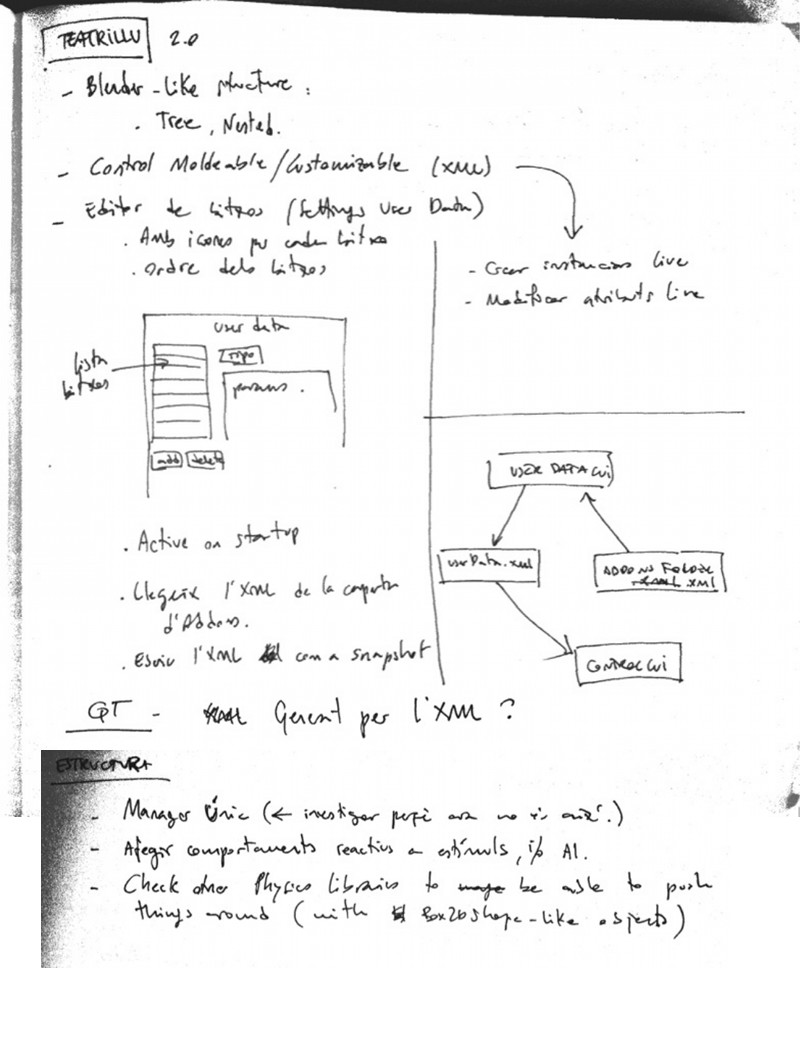 TEATRILLU 2.0
- Blender-like structure:
. Tree, Nested.
- Control Moldeable/Customizable (XML)
- Editor de bitxos (Settings User Data)
. Amb icones per cada bitxo
. Ordre dels bitxos
- Crear instancias live
- Modificar atributs live
user data
Llista
bitxos
tipo
params.
add delete
. Active on startup
. Llegeix l'XML de la carpeta
d'Addons.
. Escriu l'XML com a snapshot
USER DATA GUI
userData.xml
ADDONS FOLDER
.xml
CONTROL GUI
QT - Generat per l'XML?
ESTRUCTURA
- Manager Únic (← investigar perquè ara no és així.)
- Afegir comportaments reactius a estímuls, i/o AI.
- Check other Physics Libraries to be able to push
things around (with Box2D shape-like objects)